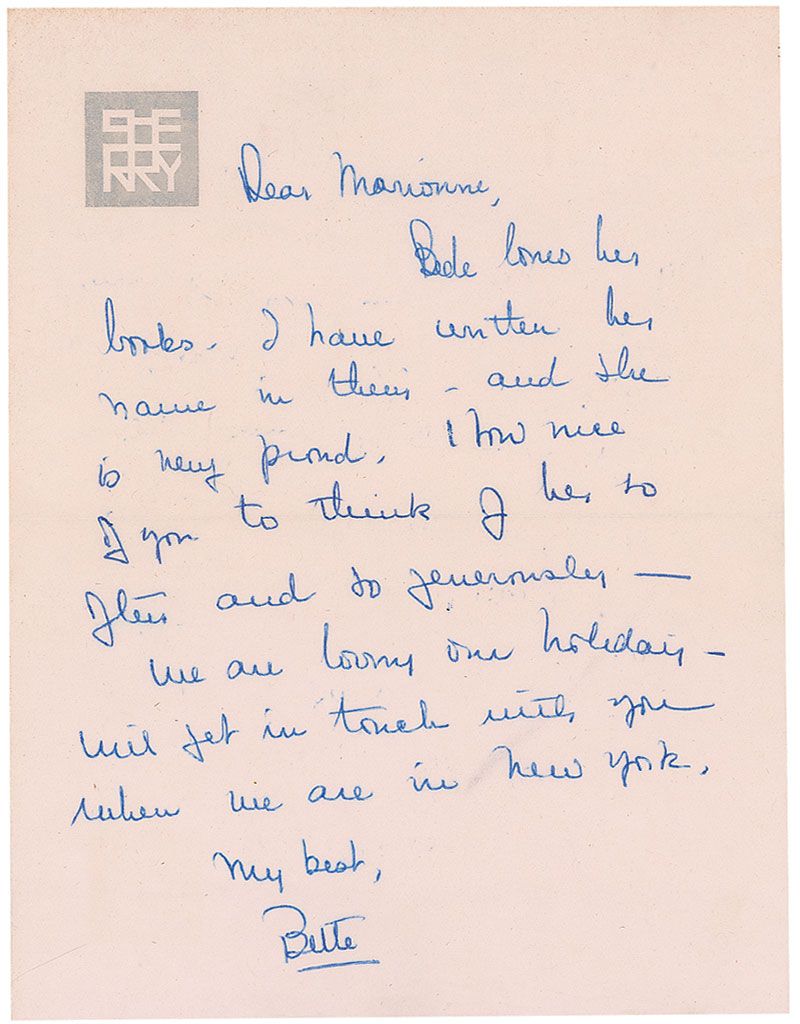 SHE
RRY
Dear Marionne,
Bede loves her
books - I have written her
name in them - and she
is very proud. How nice
of you to think of her so
often and so generously —
We are loving our holiday -
will get in touch with you
when we are in New York.
My best,
Bette